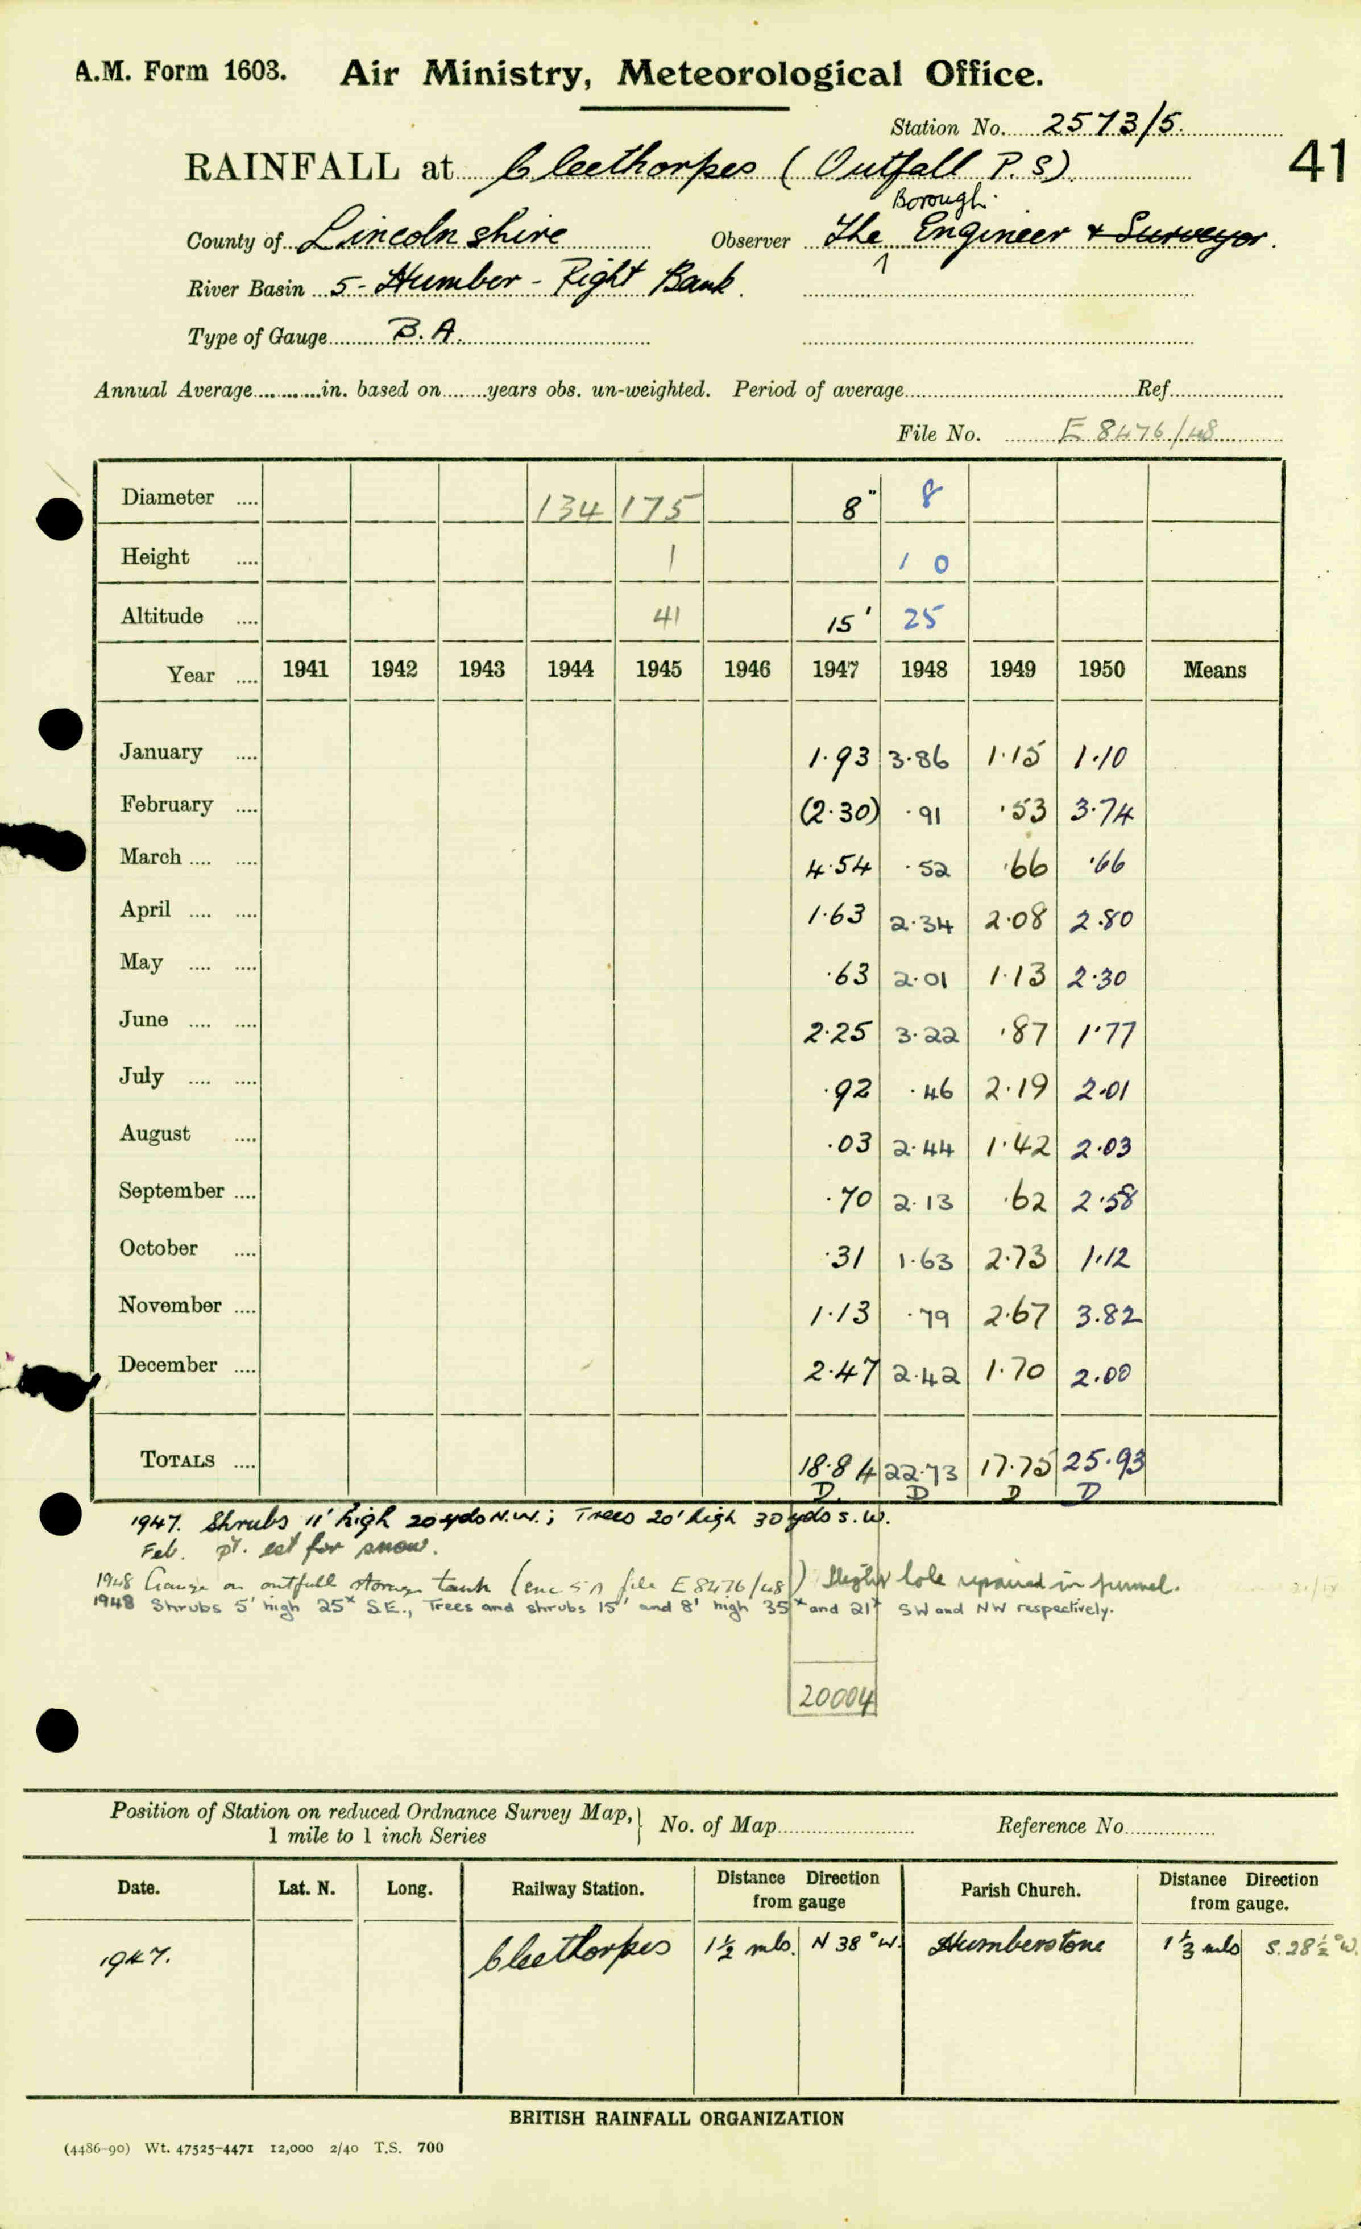 A.M. Form 1603. Air Ministry, Meteorological Office.
Station No. 2573/5.
41
RAINFALL at Cleethorpes (Outfall P.S)
Borough
County of Lincolnshire Observer The Engineer & Surveyor.
River Basin 5- Humber - Right Bank.
Type of Gauge B.A.
Annual Average in. based on years obs. un-weighted. Period of average Ref
File No. E 8476/48
Diameter 134 175 8" 8
Height 1 1 0
Altitude 41 15' 25
Year 1941 1942 1943 1944 1945 1946 1947 1948 1949 1950 Means
January 1.93 3.86 1.15 1.10
February (2.30) .91 .53 3.74
March 4.54 .52 .66 .66
April 1.63 2.34 2.08 2.80
May .63 2.01 1.13 2.30
June 2.25 3.22 .87 1.77
July .92 .46 2.19 2.01
August .03 2.44 1.42 2.03
September .70 2.13 .62 2.58
October .31 1.63 2.73 1.12
November 1.13 .79 2.67 3.82
December 2.47 2.42 1.70 2.00
TOTALS 18.84 22.73 17.75 25.93
D. D D D
1947. Shrubs 11' high 20 yds N.W.; Trees 20' high 30 yds S.W.
Feb. pt. est for snow.
1948 Gauge on outfall storage tank (enc 5A file E 8476/48) Slight hole repaired in funnel.
1948 Shrubs 5' high 25x S.E., Trees and shrubs 15' and 8' high 35x and 21x SW and NW respectively.
20004
Position of Station on reduced Ordnance Survey Map, No. of Map Reference No
1 mile to 1 inch Series
Date. Lat. N. Long. Railway Station. Distance Direction from gauge Parish Church. Distance Direction from gauge.
1947. Cleethorpes 1½ mls. N 38°W. Humberstone 1⅓ mls S. 28½°W.
BRITISH RAINFALL ORGANIZATION
(4486-90) Wt. 47525-4471 12,000 2/40 T.S. 700